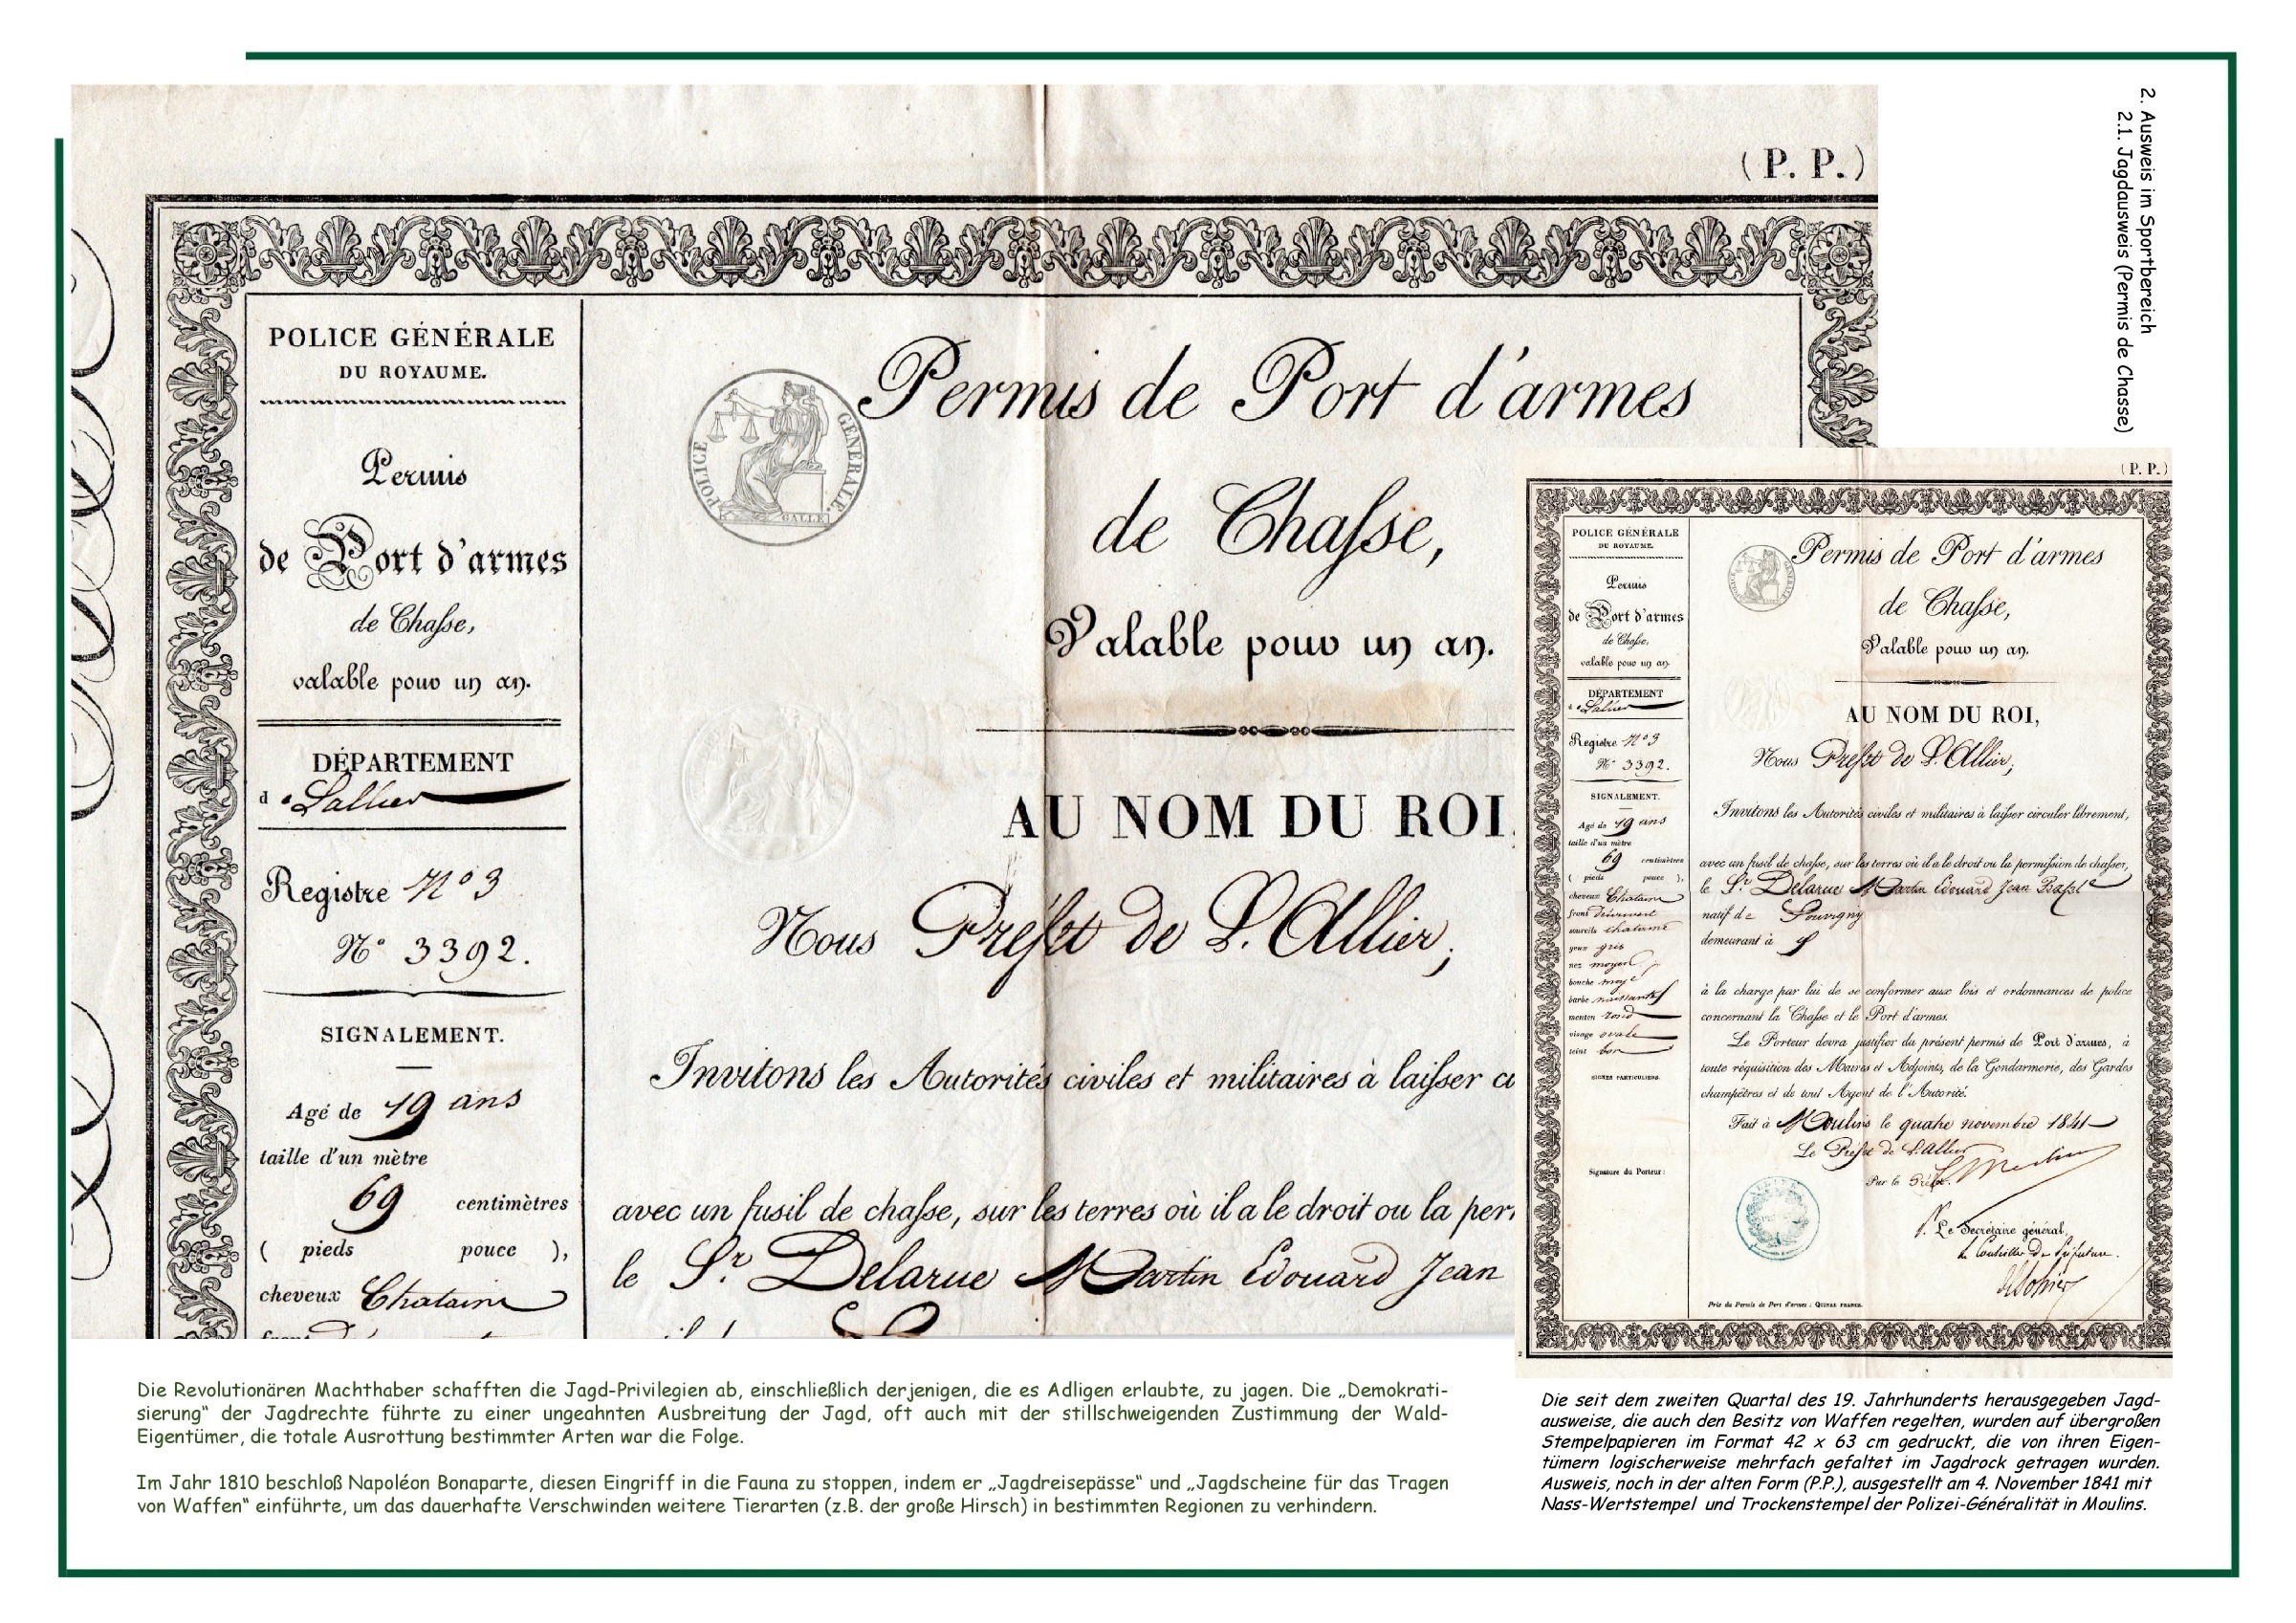 2. Ausweis im Sportbereich
2.1. Jagdausweis (Permis de Chasse)
(P. P.)
POLICE GÉNÉRALE
DU ROYAUME.
Permis
de Port d'armes
de Chasse,
valable pour un an.
DÉPARTEMENT
d e Lallier
Registre N° 3
N° 3392.
SIGNALEMENT.
Agé de 19 ans
taille d'un mètre
69 centimètres
( pieds pouce ),
cheveux Chataine
POLICE GÉNÉRALE.
GALLE
Permis de Port d'armes
de Chasse,
Valable pour un an.
AU NOM DU ROI
Nous Préfet de L'Allier;
Invitons les Autorités civiles et militaires à laisser ci
avec un fusil de chasse, sur les terres où il a le droit ou la per
le Sr. Delarue Martin Edouard Jean
(P. P.)
POLICE GÉNÉRALE
DU ROYAUME.
Permis
de Port d'armes
de Chasse,
valable pour un an.
DÉPARTEMENT
d e Lallier
Registre N° 3
N° 3392.
SIGNALEMENT.
Agé de 19 ans
taille d'un mètre
69 centimètres
( pieds pouce ),
cheveux Chataine
front découvert
sourcils chataine
yeux gris
nez moyen
bouche moye
barbe naissante
menton rond
visage ovale
teint bon
SIGNES PARTICULIERS.
Signature du Porteur :
Permis de Port d'armes
de Chasse,
Valable pour un an.
AU NOM DU ROI,
Nous Préfet de L'Allier;
Invitons les Autorités civiles et militaires à laisser circuler librement,
avec un fusil de chasse, sur les terres où il a le droit ou la permission de chasser,
le Sr. Delarue Martin Edouard Jean Bapt
natif de Souvigny
demeurant à
à la charge par lui de se conformer aux lois et ordonnances de police
concernant la Chasse et le Port d'armes.
Le Porteur devra justifier du présent permis de Port d'armes, à
toute réquisition des Maires et Adjoints, de la Gendarmerie, des Gardes
champêtres et de tout Agent de l'Autorité.
Fait à Moulins le quatre novembre 1841
Le Préfet de L'Allier
Par le Préfet.
Pr. Le Secrétaire général,
le Conseiller de Préfecture.
Prix du Permis de Port d'armes : QUINZE FRANCS.
Die Revolutionären Machthaber schafften die Jagd-Privilegien ab, einschließlich derjenigen, die es Adligen erlaubte, zu jagen. Die „Demokrati-
sierung“ der Jagdrechte führte zu einer ungeahnten Ausbreitung der Jagd, oft auch mit der stillschweigenden Zustimmung der Wald-
Eigentümer, die totale Ausrottung bestimmter Arten war die Folge.
Im Jahr 1810 beschloß Napoléon Bonaparte, diesen Eingriff in die Fauna zu stoppen, indem er „Jagdreisepässe“ und „Jagdscheine für das Tragen
von Waffen“ einführte, um das dauerhafte Verschwinden weitere Tierarten (z.B. der große Hirsch) in bestimmten Regionen zu verhindern.
Die seit dem zweiten Quartal des 19. Jahrhunderts herausgegeben Jagd-
ausweise, die auch den Besitz von Waffen regelten, wurden auf übergroßen
Stempelpapieren im Format 42 x 63 cm gedruckt, die von ihren Eigen-
tümern logischerweise mehrfach gefaltet im Jagdrock getragen wurden.
Ausweis, noch in der alten Form (P.P.), ausgestellt am 4. November 1841 mit
Nass-Wertstempel und Trockenstempel der Polizei-Généralität in Moulins.